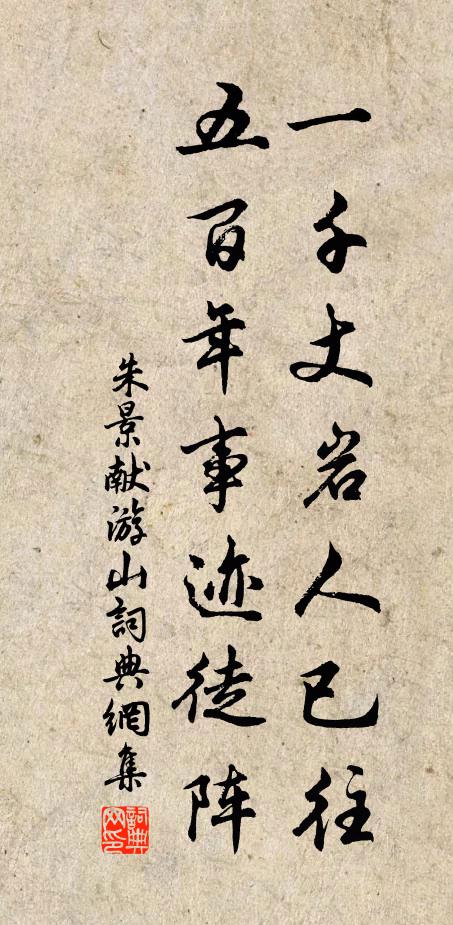 一千丈岩人已往
五百年事迹徒阵
朱景献游山詞典網集
詞典網印